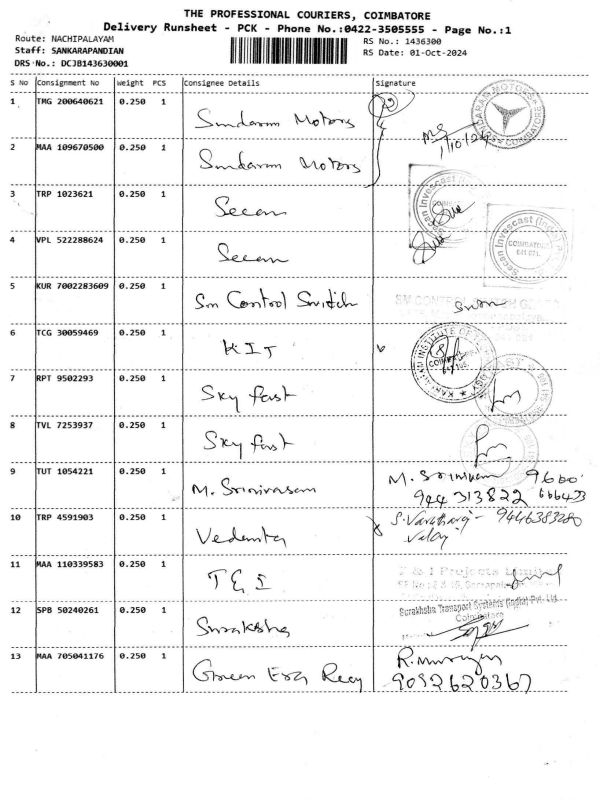 THE PROFESSIONAL COURIERS, COIMBATORE
Delivery Runsheet - PCK - Phone No.:0422-3505555 - Page No.:1
Route: NACHIPALAYAM
RS No.: 1436300
Staff: SANKARAPANDIAN
RS Date: 01-Oct-2024
DRS No.: DCJB143630001
S No Consignment No Weight PCS Consignee Details Signature
1 TMG 200640621 0.250 1 Sundaram Motors
1/10/24
2 MAA 109670500 0.250 1 Sundaram Motors
3 TRP 1023621 0.250 1 Secan
4 VPL 522288624 0.250 1 Secan
COIMBATORE
641 021.
5 KUR 7002283609 0.250 1 Sm Control Switch
SM CONTROL
6 TCG 30059469 0.250 1 KIT
7 RPT 9502293 0.250 1 Sky fast
8 TVL 7253937 0.250 1 Sky fast
9 TUT 1054221 0.250 1 M. Srinivasan M. Srinivasan
944 313822
10 TRP 4591903 0.250 1 Vedanta 9446383280
11 MAA 110339583 0.250 1 T & I
T & I Projects Limited
12 SPB 50240261 0.250 1 Suraksha
Surakhsha Transport Systems (India) Pvt. Ltd.
Coimbatore
13 MAA 705041176 0.250 1 Green Era Recy R. Murugan
9092620367